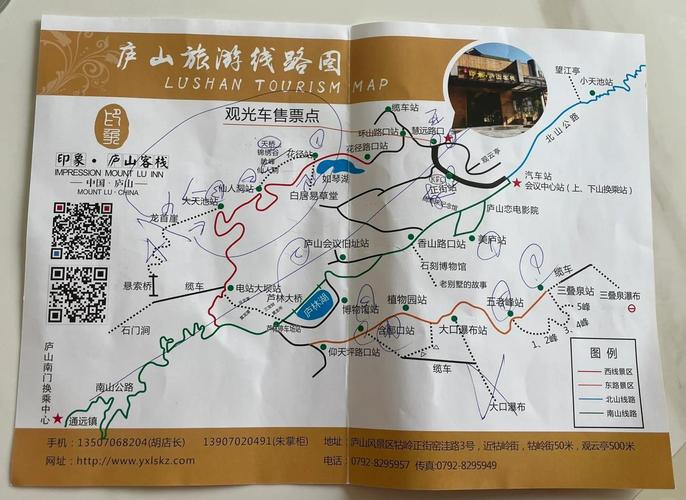 庐山旅游线路图
LUSHAN TOURISM MAP
观光车售票点
印象
印象·庐山客栈
IMPRESSION MOUNT LU INN
中国·庐山
MOUNT LU·CHINA
缆车站
环山路口站
慧远路口
花径路口站
望江亭
小天池站
北山公路
观云亭
汽车站
会议中心站（上、下山换乘站）
天桥
锦绣谷
险峰
仙人洞
花径站
如琴湖
白居易草堂
仙人洞站
大天池站
龙首崖
正街站
庐山恋电影院
庐山会议旧址站
香山路口站
美庐站
石刻博物馆
老别墅的故事
悬索桥
缆车
电站大坝站
芦林大桥
庐林湖
博物馆站
植物园站
五老峰站
缆车
三叠泉站
三叠泉瀑布
5峰
3、4峰
1、2峰
石门涧
含鄱口站
大口瀑布站
仰天坪路口站
缆车
大口瀑布
庐山南门换乘中心
南山公路
通远镇
图 例
西线景区
东路景区
北山线路
南山线路
手机：13507068204(胡店长) 13907020491(朱掌柜) 地址：庐山风景区牯岭正街窑洼路3号，近牯岭街，牯岭街50米，观云亭500米
网址：http://www.yxlskz.com 电话：0792-8295957 传真:0792-8295949